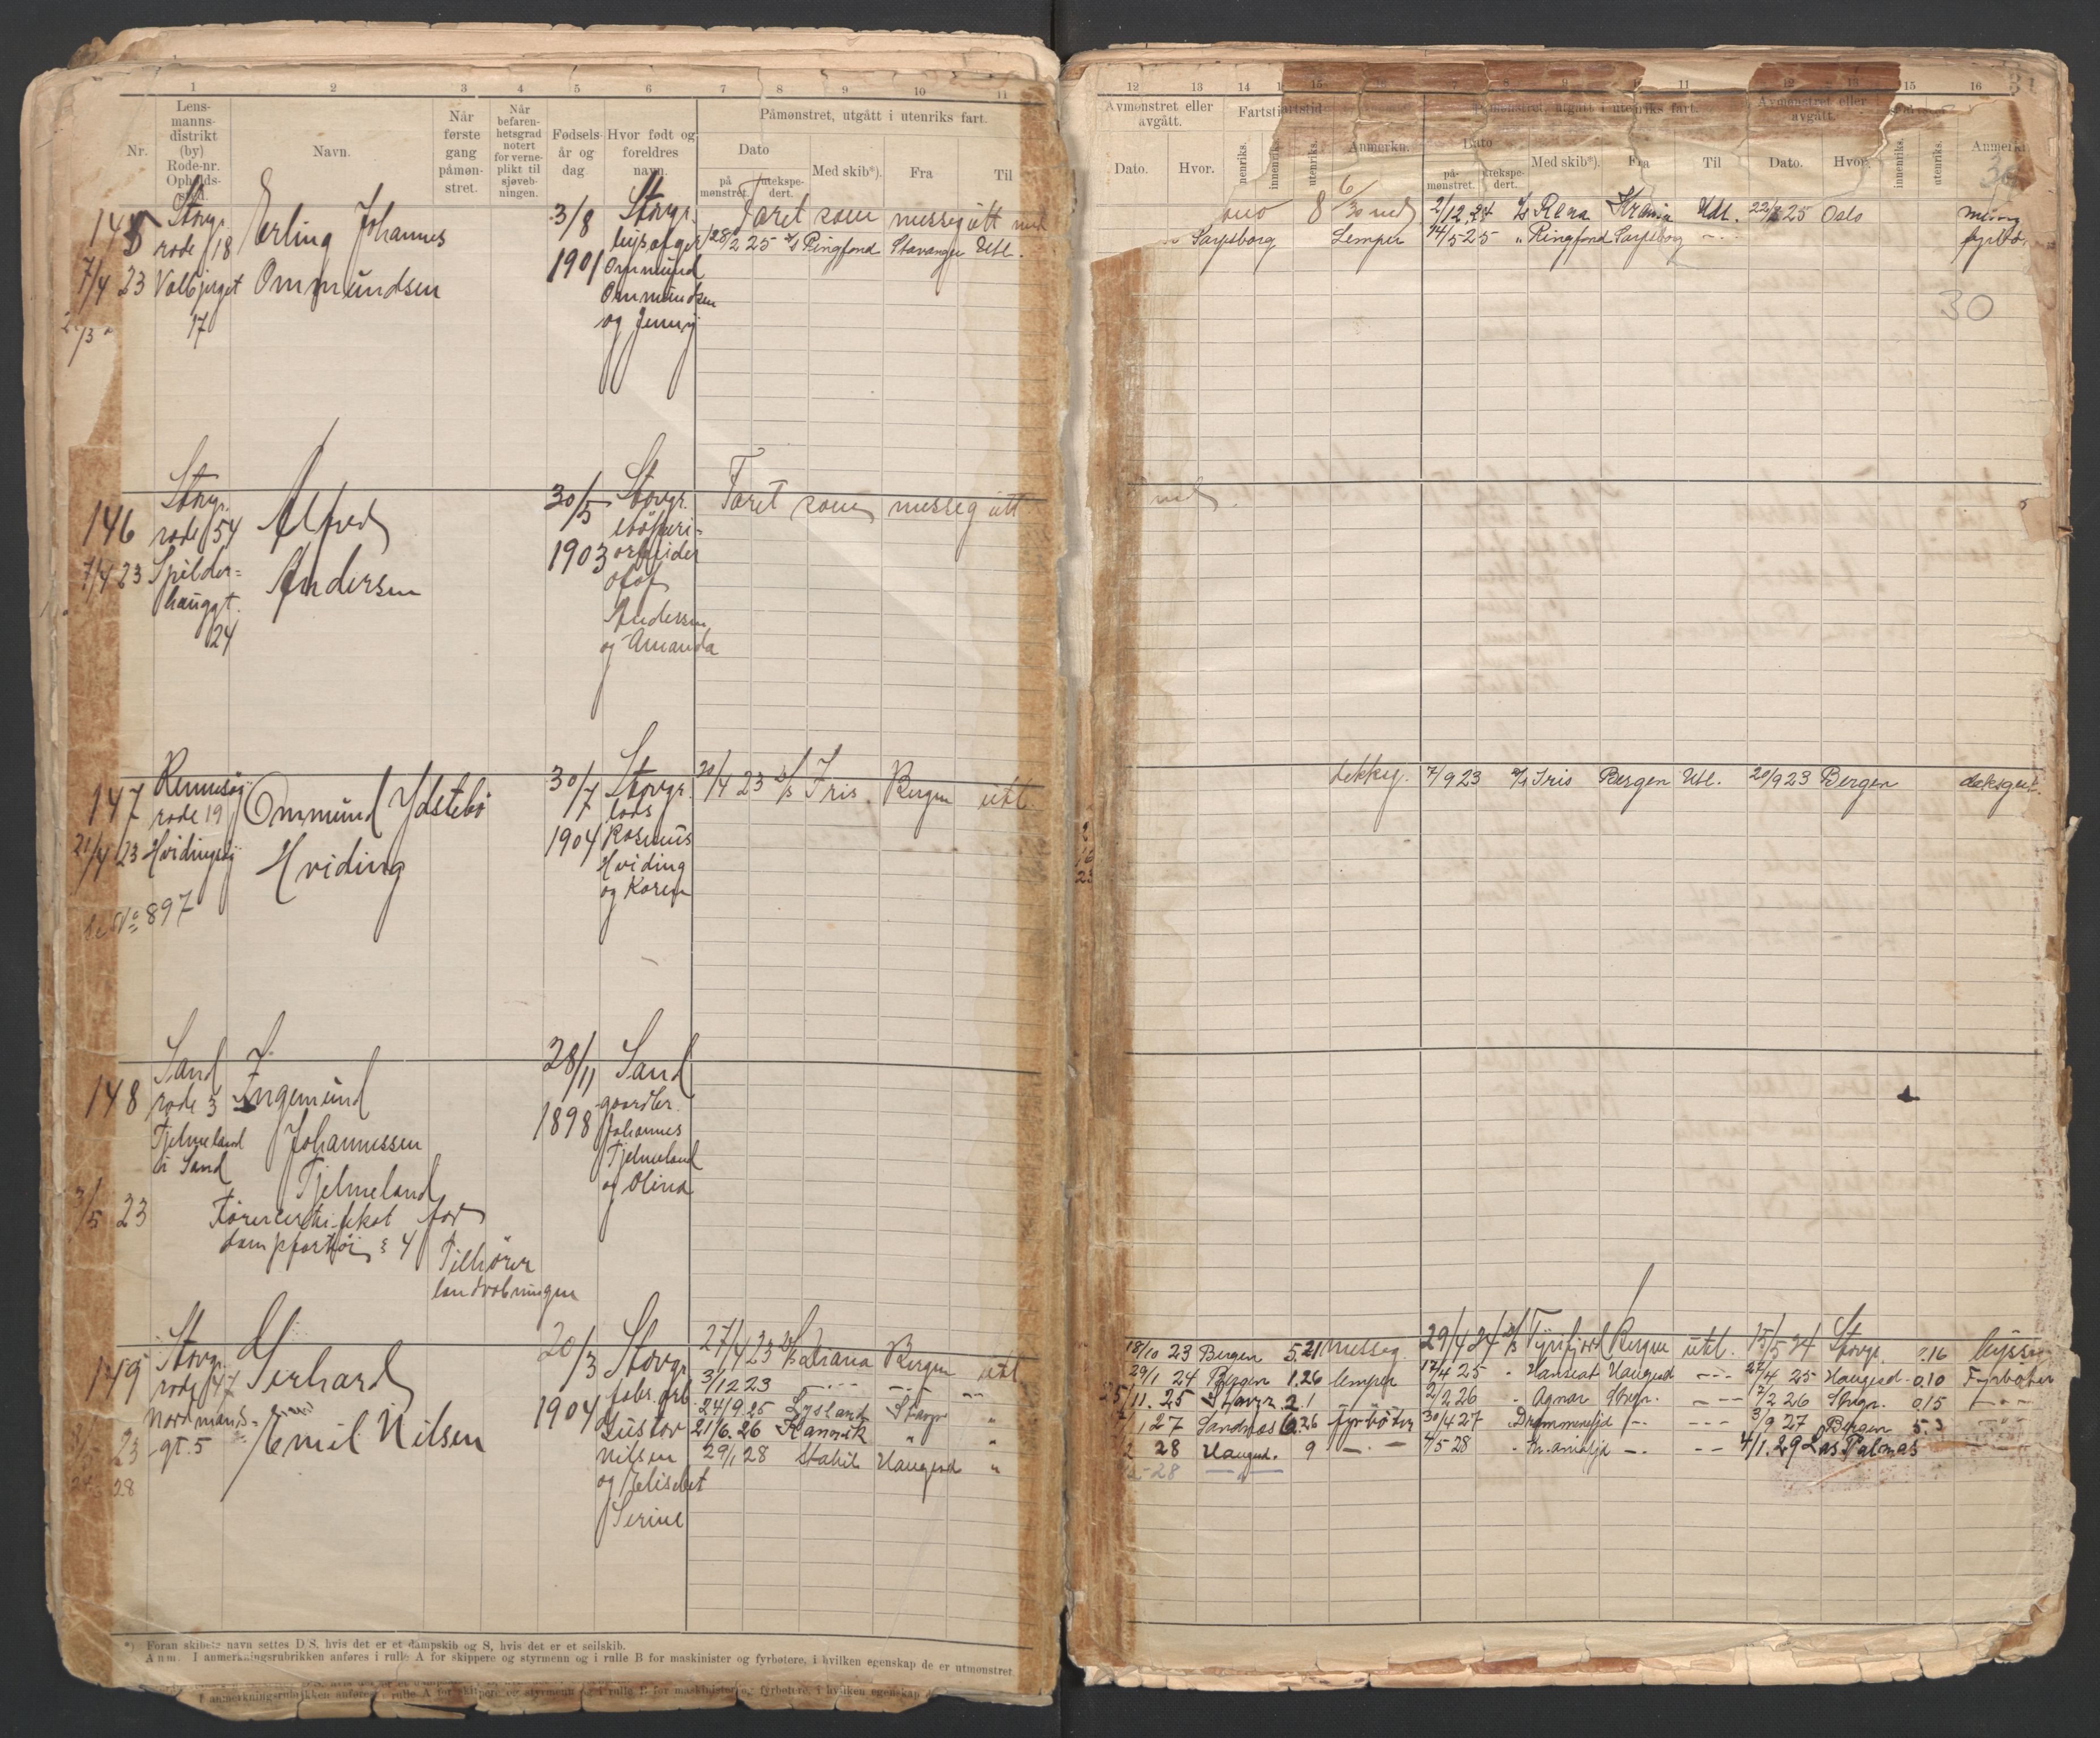 1 2 3 4 5 6 7 8 9 10 11
Nr.
Lens-
manns-
distrikt
(by)
Rode-nr.
Opholds-
sted.
Navn.
Når
første
gang
påmøn-
stret.
Når
befaren-
hetsgrad
notert
for verne-
plikt til
sjøveb-
ningen.
Fødsels-
år og
dag
Hvor født og
foreldres
navn.
Påmønstret, utgått i utenriks fart.
Dato
på
mønstret.
utekspe-
dert.
Med skib*).
Fra
Til
145
7/4 23
Stavgr.
rode 18
Valbjerget
17
Erling Johannes
Ommundsen
3/8
1901
Stavgr.
Ommund
Ommundsen
og Jenny
Faret som messegutt
28/2 25 Ringfond Stavanger Utl.
146
7/4 23
Stavgr.
rode 54
Spilder-
haugt.
24
Alfred
Andersen
30/5
1903
Stavgr.
arbeider
Olof
Andersen
og Amanda
Faret som messegutt
147
21/4 23
Rennesøy
rode 19
Hvidingsøy
897
Ommund Ydstebø
Hviding
30/7
1904
Stavgr.
lods
Rasmus
Hviding
og Karen
20/4 23 D/S Iris Bergen utl.
148
3/5 23
Sand
rode 3
Tjelmeland
i Sand
Ingemund
Johannessen
Tjelmeland
Førercertifikat for
dampfartøi § 4
Tilhører
landvebningen
28/11
1898
Sand
gaardbr.
Johannes
Tjelmeland
og Olina
149
Stavgr.
rode 47
Nordmands-
gt. 5
Gerhard
Emil Nilsen
20/3
1904
Stavgr.
fabr. arb.
Gustav
Nilsen
og Elisebet
Serine
27/4 23 Bergen utl.
3/12 23 - - -
24/9 25 Lysland Stavgr "
21/6. 26 " "
29/1 28 Stahil Haugesd "
*) Foran skibets navn settes D/S, hvis det er et dampskib og S, hvis det er et seilskib.
Anm. I anmerkningsrubrikken anføres i rulle A for skippere og styrmenn og i rulle B for maskinister og fyrbøtere, i hvilken egenskap de er utmønstret
I anmerkningsrubrikken anføres i rulle A for skippere og styrmenn og i rulle B for maskinister og fyrbøtere, i hvilken egenskap
12 13 14 15 7 8 9 10 11 12 13 15 16
Avmønstret eller
avgått.
Dato.
Hvor.
Fartstid
utenriks.
Anmerkn.
Påmønstret, utgått i utenriks fart.
Dato
på-
mønstret.
utekspe-
dert.
Med skib*).
Fra
Til
Avmønstret eller
avgått.
Dato.
Hvor.
innenriks.
utenriks.
Anmerkn.
30
8 2/12 24 D/S Rena Krania Utl. 22/2 25 Oslo
Sarpsborg Lemper 14/5 25 " Ringfond Sarpsborg - - fyrbø.
30
dekksg. 7/9 23 D/S Iris Bergen Utl. 20/9 23 Bergen deksgut.
18/10 23 Bergen 5.21 messeg. 29/4 24 D/S Tyrifjord Bergen utl. 15/5 24 Stavgr. 0.16
29/1 24 Bergen 1.26 lemper 17/4 25 - Hanseat Haugesd - - - 27/4 25 Haugesd. 0.10 Fyrbøter
25/11. 25 Stavgr. 2.1 2/2 26 - Agnar Stvgr. - - 17/2 26 Stvgr. 0.15 - - -
27 Sandnæs 6.26 fyrbøter 30/4 27 Drammensfjd - - - - - 3/9 27 Bergen 5.3
28 Haugesd. 9 - - - 4/5 28 - - - - 4/1. 29 Las Palmas
28